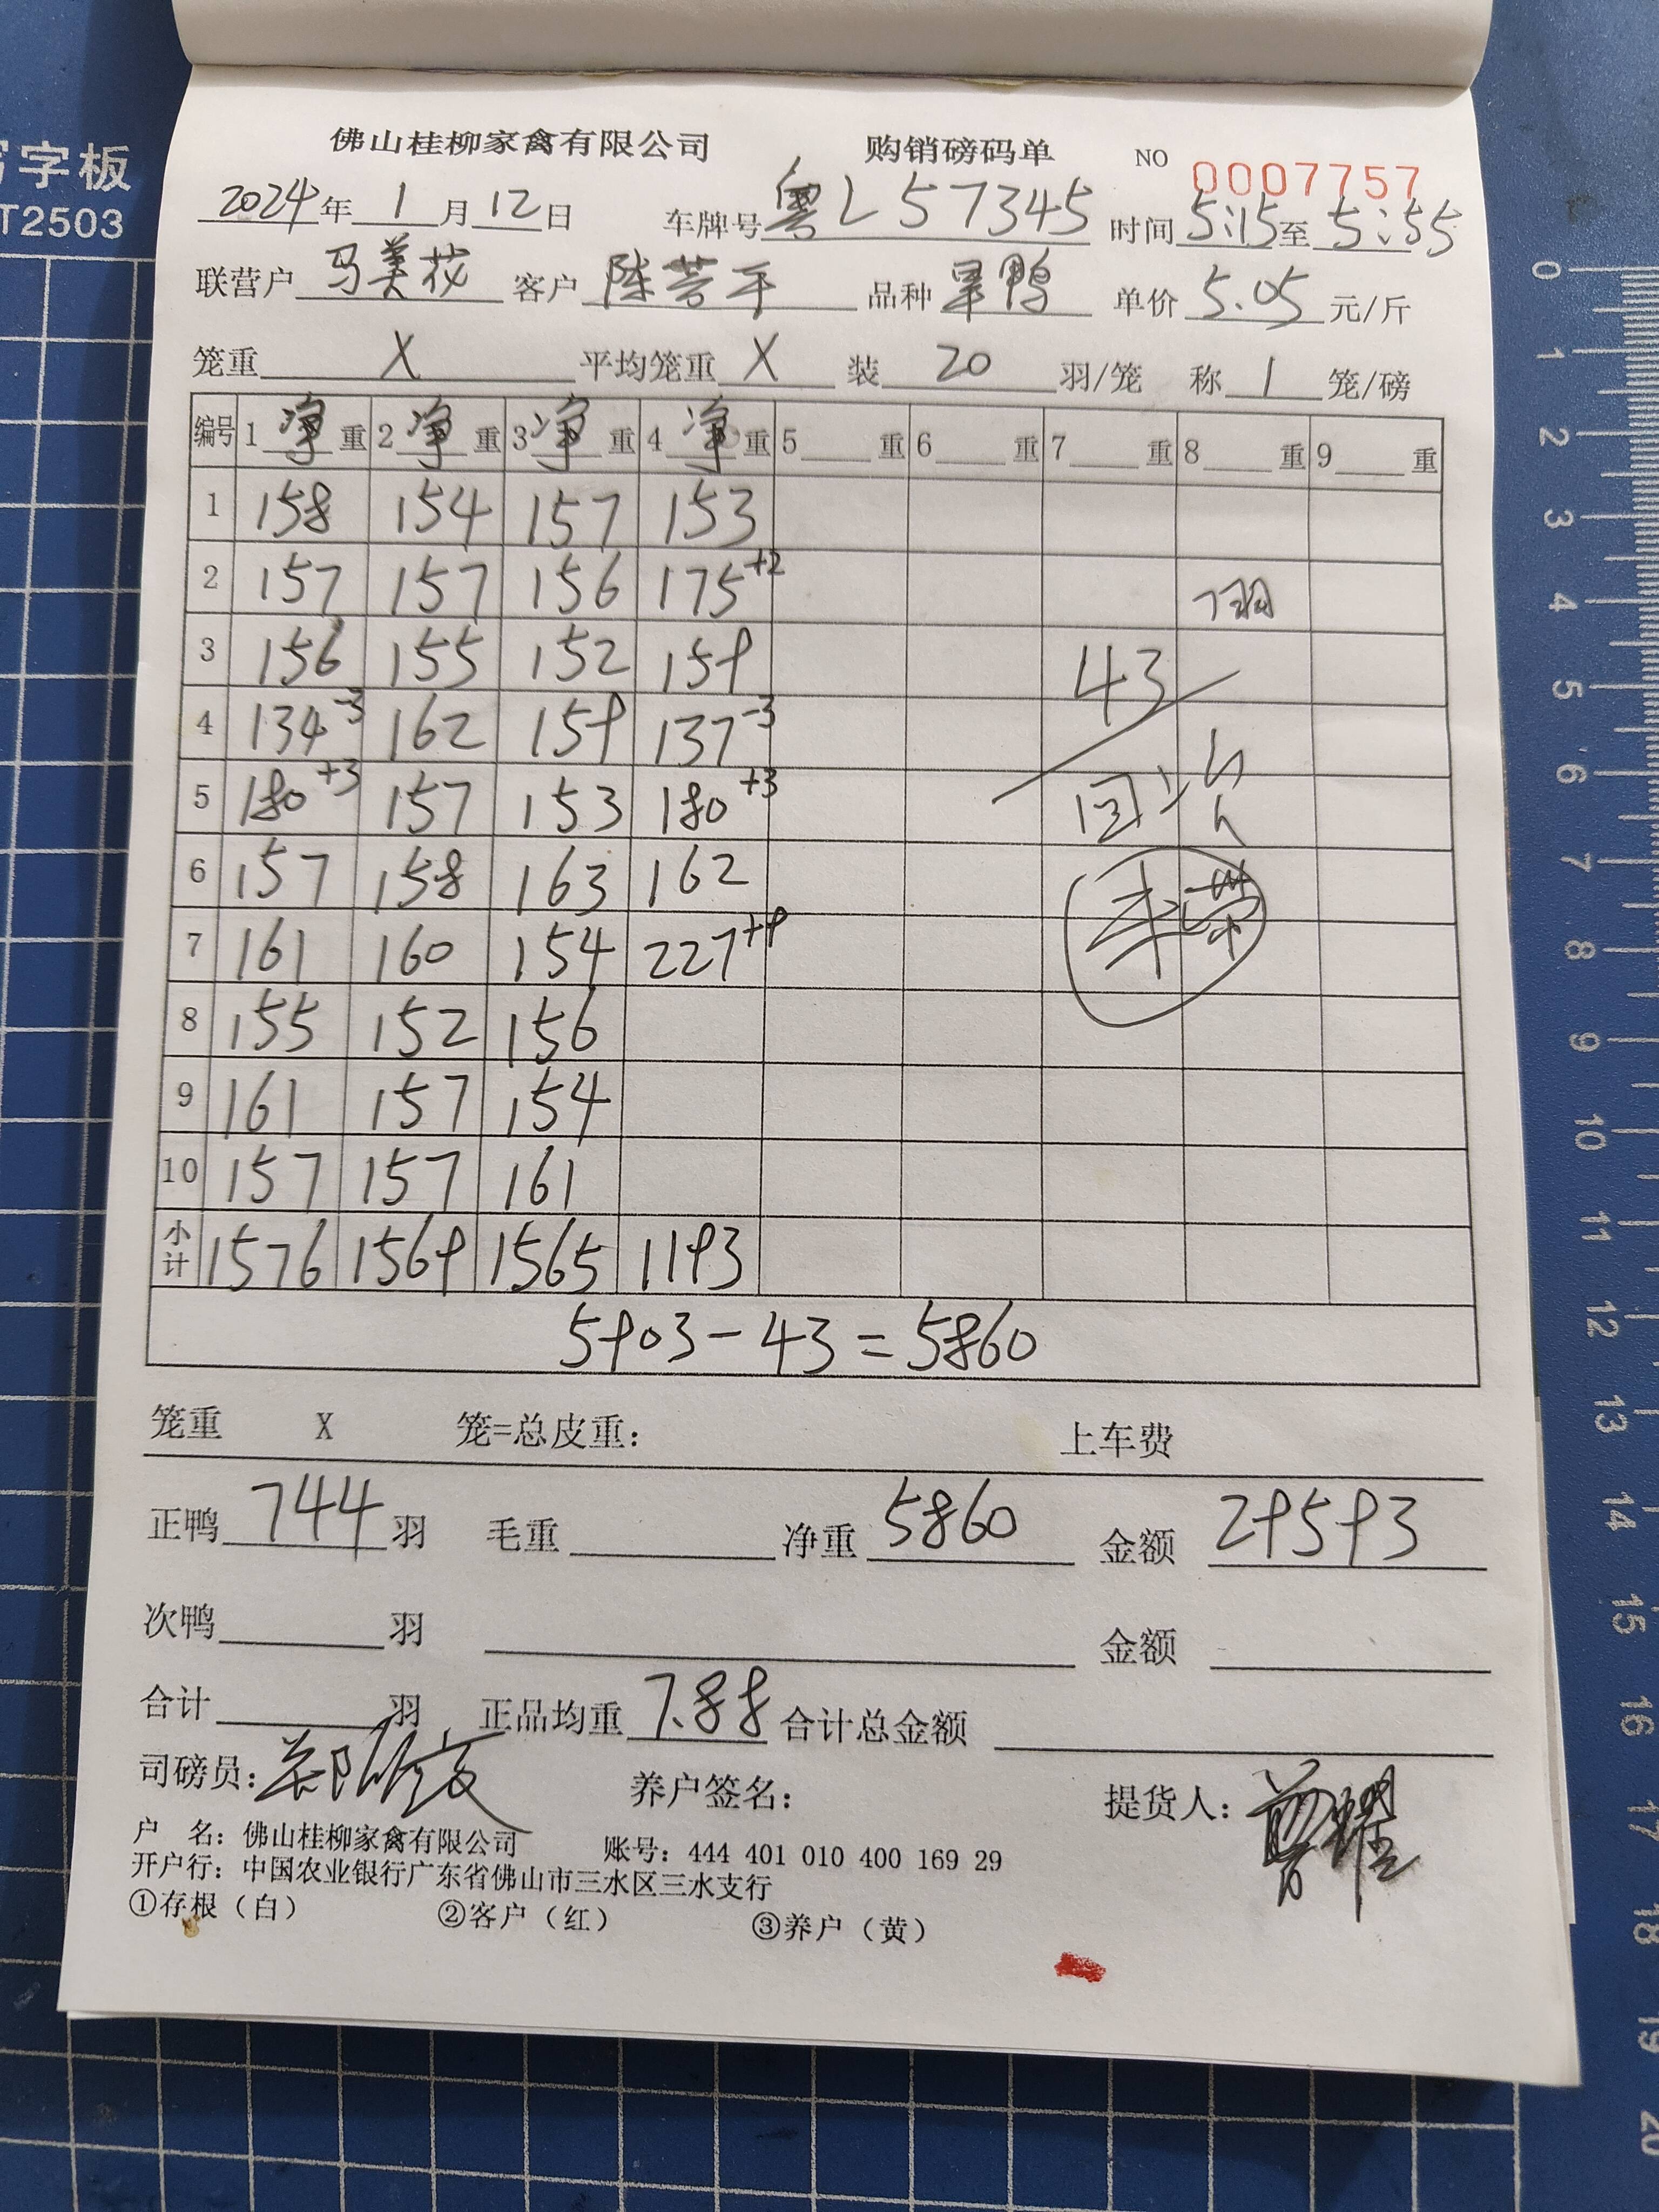 写字板
T2503
佛山桂柳家禽有限公司 购销磅码单 NO 0007757
2024年 1月12日 车牌号 粤L57345 时间 5:15至 5:55
联营户 马美花 客户 陈芳干 品种 旱鸭 单价 5.05 元/斤
笼重 X 平均笼重 X 装 20 羽/笼 称 1 笼/磅
编号 1 净重 2 净重 3 净重 4 净重 5 重 6 重 7 重 8 重 9 重
1 158 154 157 153
2 157 157 156 175+2 7羽
3 156 155 152 159 43
4 134-3 162 159 137-3
5 180+3 157 153 180+3 回
6 157 158 163 162
7 161 160 154 227+9
8 155 152 156
9 161 157 154
10 157 157 161
小计 1576 1569 1565 1193
5903-43=5860
笼重 X 笼=总皮重: 上车费
正鸭 744 羽 毛重 净重 5860 金额 29593
次鸭 羽 金额
合计 羽 正品均重 7.88 合计总金额
司磅员: 养户签名: 提货人:
户 名: 佛山桂柳家禽有限公司 账号: 444 401 010 400 169 29
开户行: 中国农业银行广东省佛山市三水区三水支行
①存根（白） ②客户（红） ③养户（黄）
0
1
2
3
4
5
6
7
8
9
10
11
12
13
14
15
16
17
18
19
20